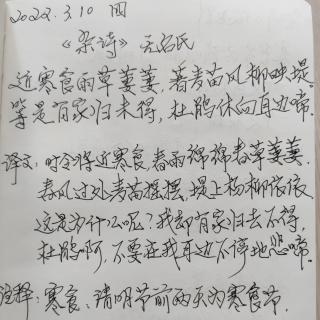 2022.3.10 四
《杂诗》无名氏
近寒食雨草萋萋,著麦苗风柳映堤.
等是有家归未得,杜鹃休向耳边啼.
译文:时令将近寒食,春雨绵绵春草萋萋.
春风过处麦苗摇摆,堤上杨柳依依
这是为什么呢?我却有家归去不得,
杜鹃啊,不要在我耳边不停地悲啼.
注释:寒食:清明节前两天为寒食节.